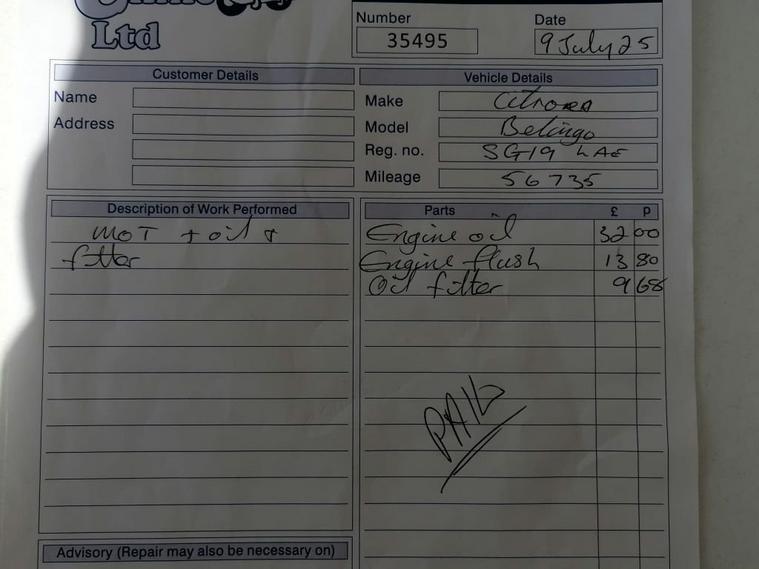 Ltd
Number
Date
35495
9 July 25
Customer Details
Vehicle Details
Name
Make
Citroen
Address
Model
Belingo
Reg. no.
SG19 LAE
Mileage
56735
Description of Work Performed
Parts £ p
MOT + oil &
filter
Engine oil 32 00
Engine flush 13 80
Oil filter 9 68
PAID
Advisory (Repair may also be necessary on)